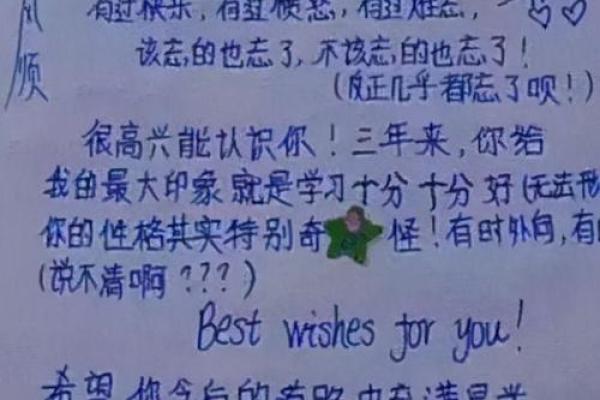 风顺
有过快乐, 有过, 有过难忘,
该忘的也忘了, 不该忘的也忘了!
(反正几乎都忘了呗!)
很高兴能认识你! 三年来, 你给
我的最大印象就是学习十分十分好(无法
你的性格其实特别奇怪! 有时外向, 有
(说不清啊???)
Best wishes for you!
希望你今后的道路中充满